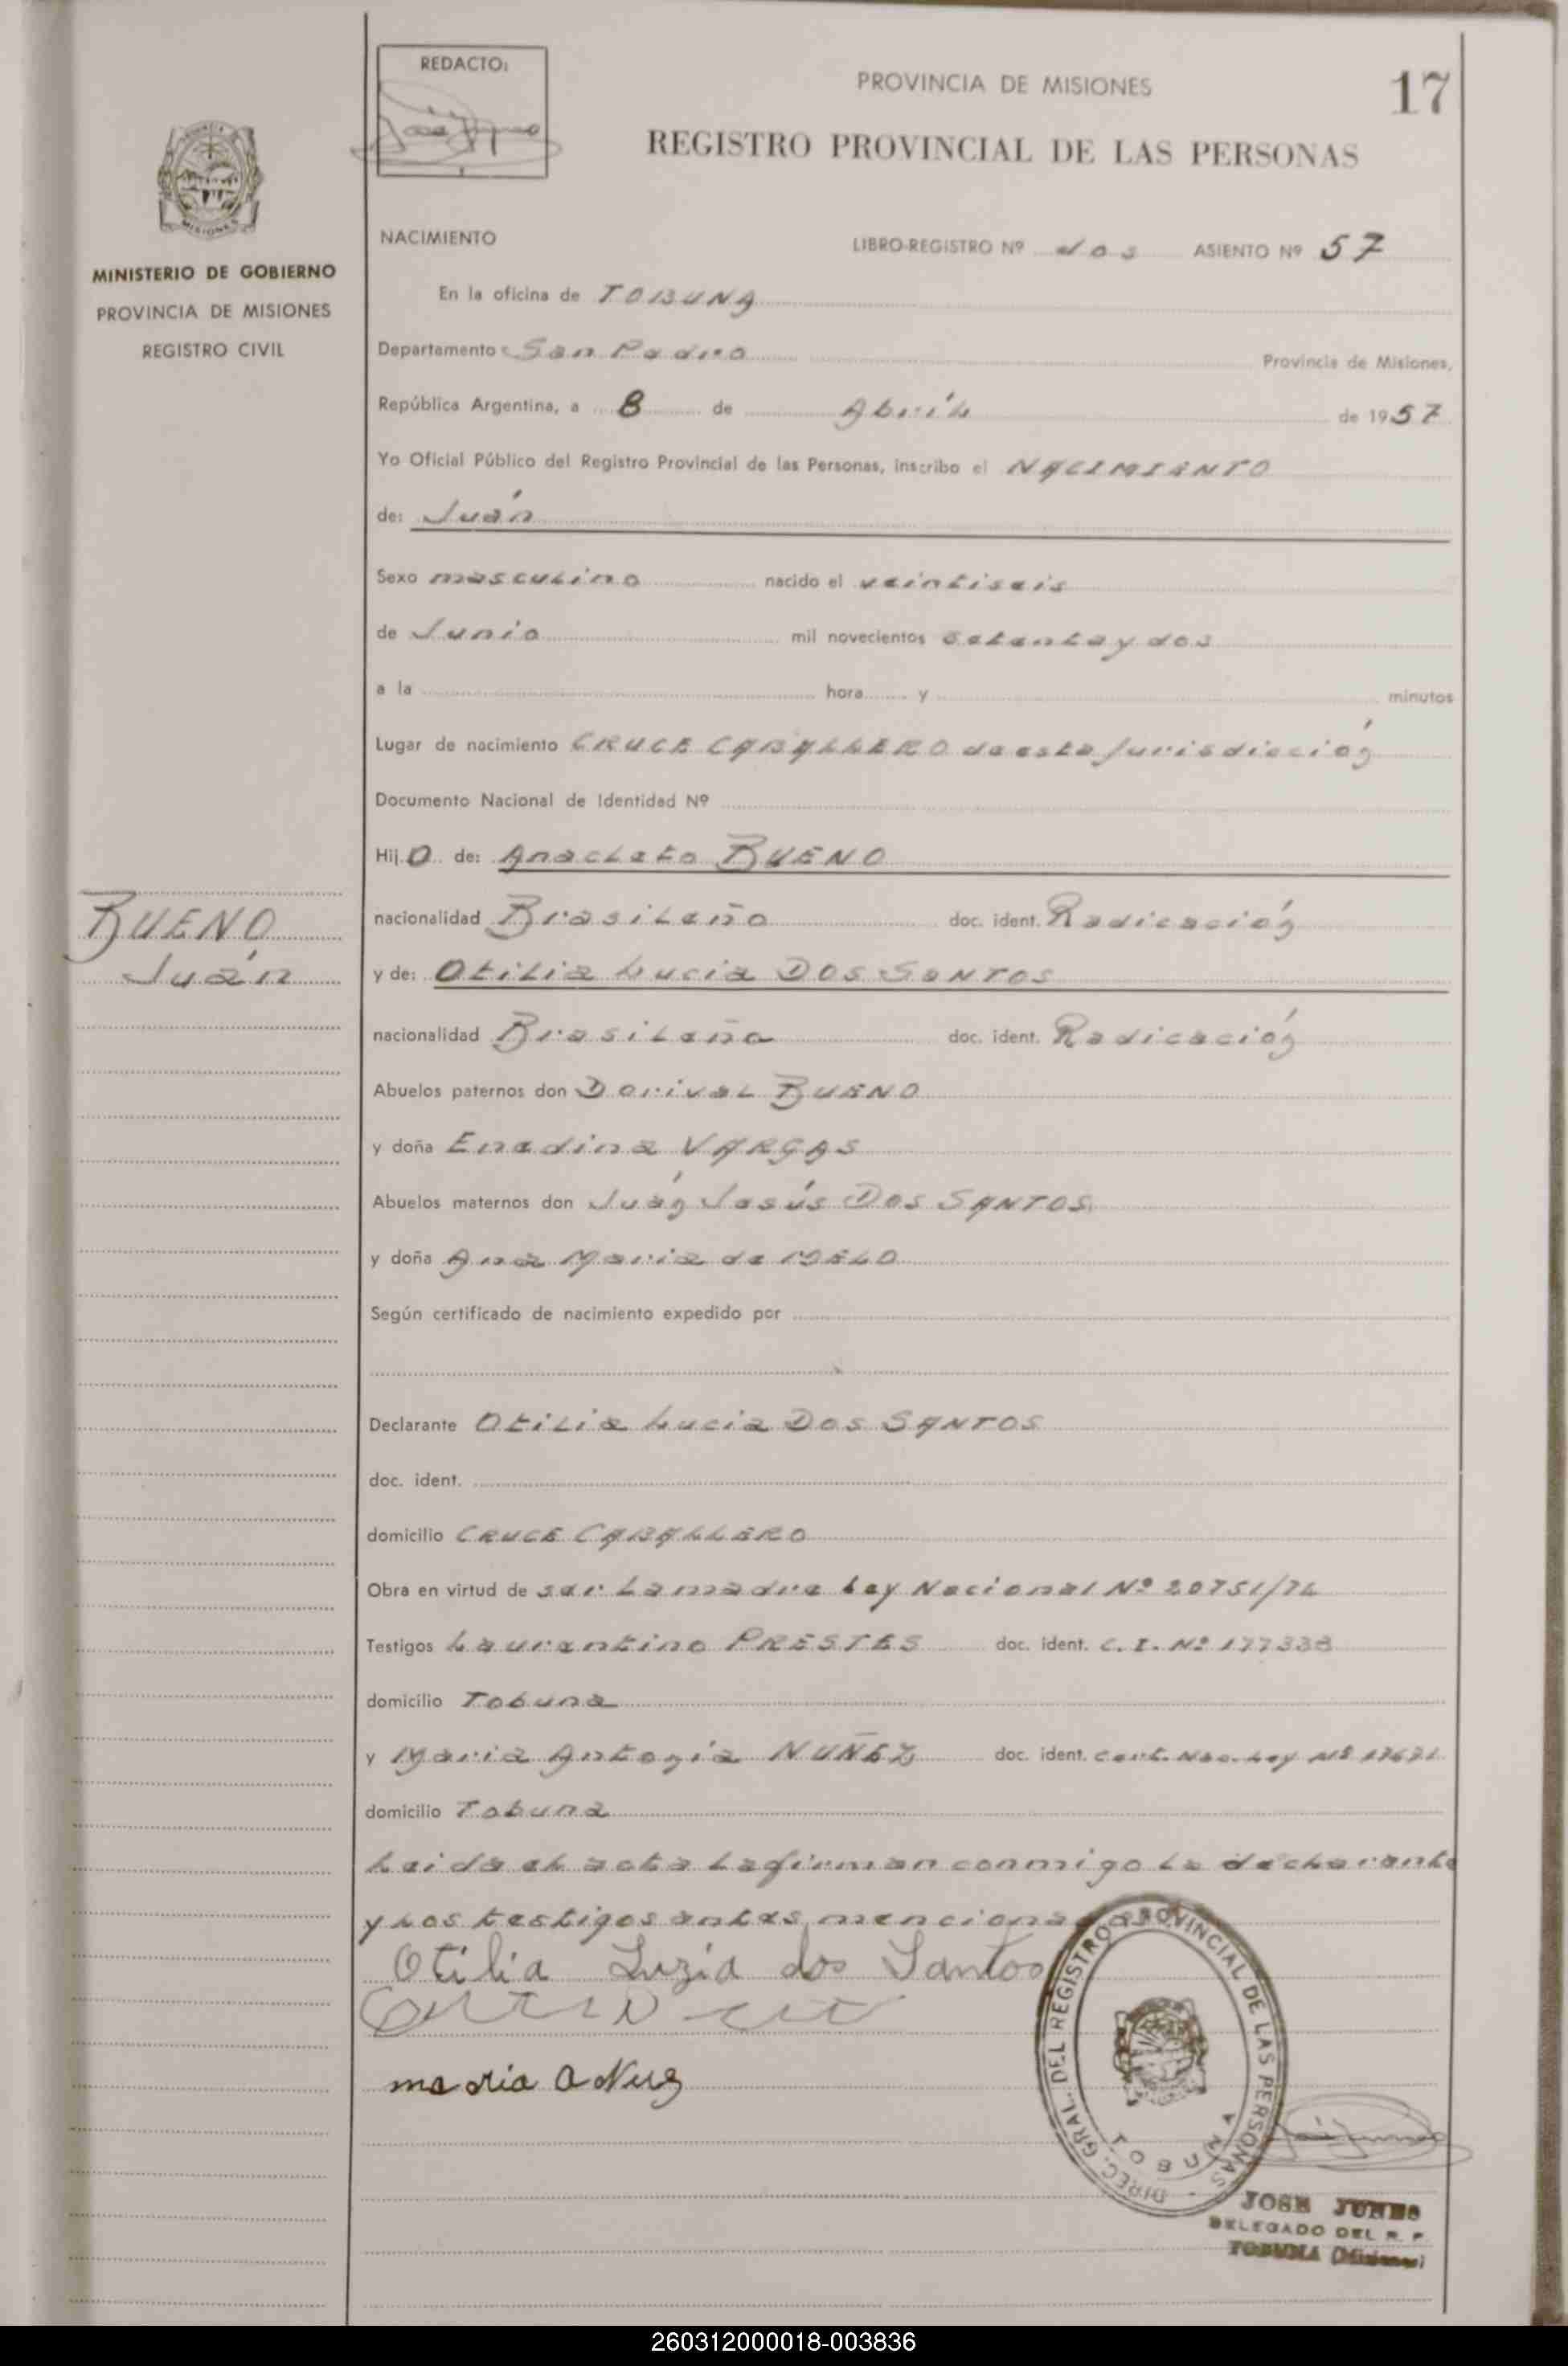 REDACTO:
PROVINCIA DE MISIONES
17
REGISTRO PROVINCIAL DE LAS PERSONAS
MISIONES
MINISTERIO DE GOBIERNO
PROVINCIA DE MISIONES
REGISTRO CIVIL
NACIMIENTO LIBRO-REGISTRO Nº dos ASIENTO Nº 57
En la oficina de TOBUNA
Departamento San Pedro Provincia de Misiones,
República Argentina, a 8 de Abril de 1957
Yo Oficial Público del Registro Provincial de las Personas, inscribo el NACIMIENTO
de: Juán
Sexo masculino nacido el veintiseis
de Junio mil novecientos setenta y dos
a la hora y minutos
Lugar de nacimiento CRUCE CABALLERO de esta Jurisdicción
Documento Nacional de Identidad Nº
Hijo de: Anacleto BUENO
BUENO
Juán
nacionalidad Brasileño doc. ident. Radicación
y de: Otilia Lucia DOS SANTOS
nacionalidad Brasileña doc. ident. Radicación
Abuelos paternos don Dorival BUENO
y doña Enedina VARGAS
Abuelos maternos don Juán Jesús DOS SANTOS
y doña Ana Maria de MELO
Según certificado de nacimiento expedido por
Declarante Otilia Lucia DOS SANTOS
doc. ident.
domicilio CRUCE CABALLERO
Obra en virtud de ser la madre Ley Nacional Nº 20751/74
Testigos Laurentino PRESTES doc. ident. C.I. Nº 177338
domicilio Tobuna
y Maria Antonia NUÑEZ doc. ident. Cert. Nac. Ley Nº 17671
domicilio Tobuna
Leida el acta la firman conmigo la declarante
y los testigos antes mencionados
Otilia Luzia dos Santos
maria a Nuz
DIREC. GRAL. DEL REGISTRO PROVINCIAL DE LAS PERSONAS
TOBUNA
JOSE JUNES
DELEGADO DEL R. P.
TOBUNA (Misiones)
260312000018-003836